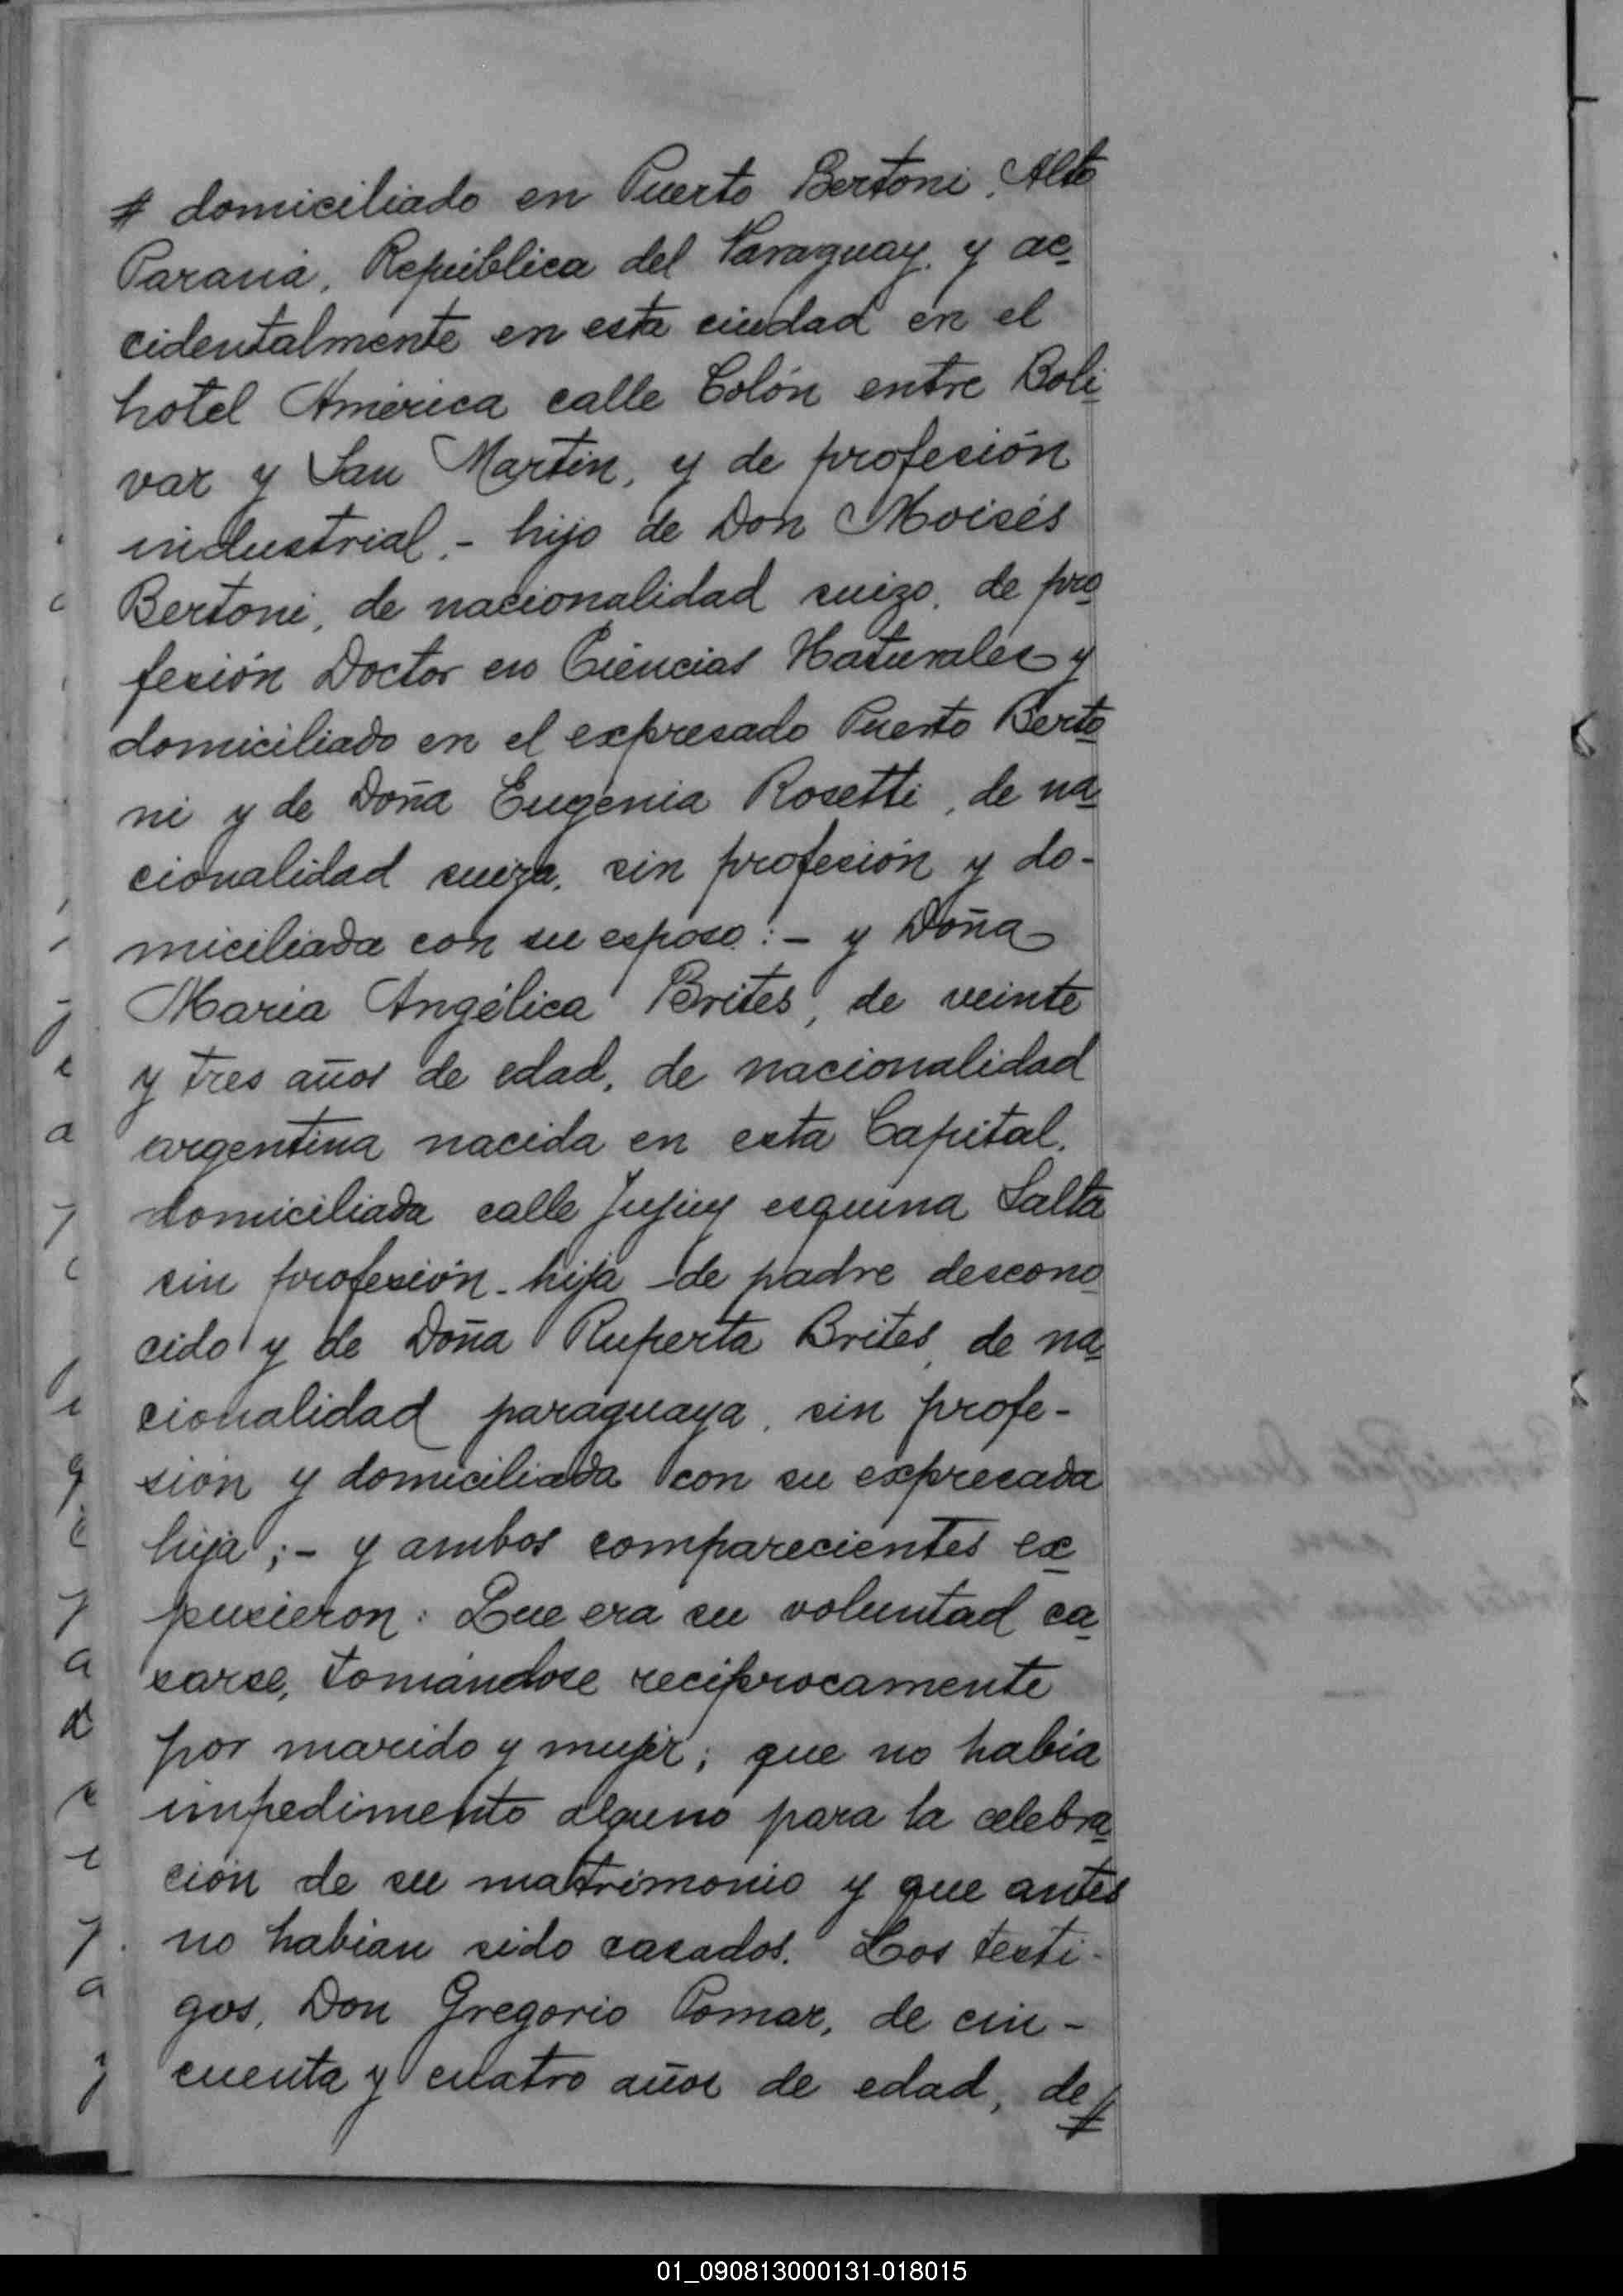 # domiciliado en Puerto Bertoni, Alto
Paraná, República del Paraguay, y ac-
cidentalmente en esta ciudad en el
hotel América calle Colón entre Boli-
var y San Martin, y de profesión
industrial.- hijo de Don Moisés
Bertoni, de nacionalidad suizo, de pro-
fesión Doctor en Ciencias Naturales y
domiciliado en el expresado Puerto Berto-
ni y de Doña Eugenia Rosetti, de na-
cionalidad suiza, sin profesión y do-
miciliada con su esposo:- y Doña
Maria Angélica Brites, de veinte
y tres años de edad, de nacionalidad
argentina nacida en esta Capital,
domiciliada calle Jujuy esquina Salta
sin profesión - hija de padre descono-
cido y de Doña Ruperta Brites, de na-
cionalidad paraguaya, sin profe-
sión y domiciliada con su expresada
hija;- y ambos comparecientes ex-
pusieron: Que era su voluntad ca-
sarse, tomándose reciprocamente
por marido y mujer; que no había
impedimento alguno para la celebra-
ción de su matrimonio y que antes
no habian sido casados. Los testi-
gos, Don Gregorio Pomar, de cin-
cuenta y cuatro años de edad, de #
01_090813000131-018015